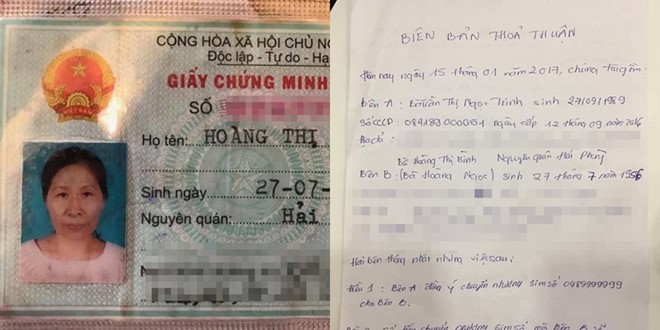 CỘNG HÒA XÃ HỘI CHỦ NG
Độc lập - Tự do - Hạ
GIẤY CHỨNG MINH
SỐ
Họ tên: HOÀNG THỊ
Sinh ngày 27-07-
Nguyên quán: Hải
BIÊN BẢN THOẢ THUẬN
Hôm nay ngày 15 tháng 01 năm 2017, chúng tôi gồm:
Bên A: Trần Thị Ngọc Trinh sinh: 27/09/1989
Số CCCD: 084189000051 ngày cấp 12 tháng 09 năm 2016
Địa chỉ:
Bà Hoàng Thị Bình Nguyên quán Hải Phòng
Bên B: (Bà Hoàng Ngọc) sinh 27 tháng 7 năm 1956
Hai bên thống nhất những việc sau:
Điều 1: Bên A đồng ý chuyển nhượng sim số 0989999999
cho Bên B.